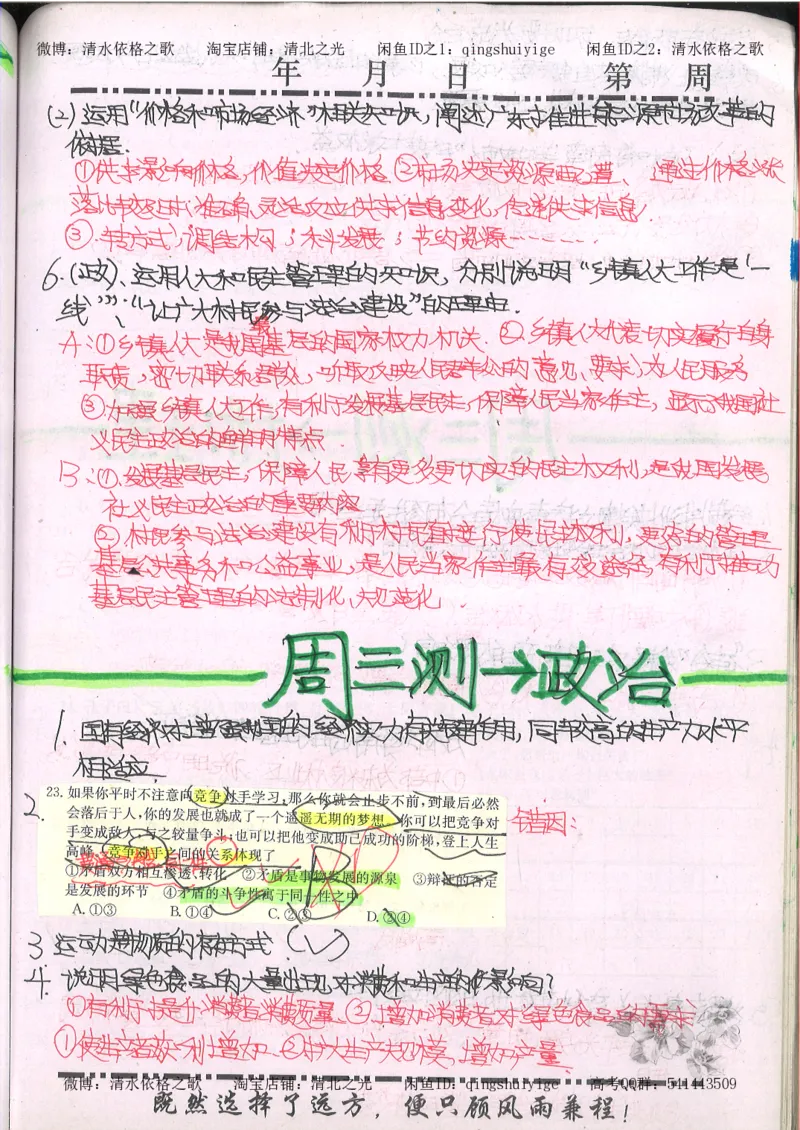 微博：清水依格之歌 淘宝店铺：清北之光 闲鱼ID之1：qingshuiyige 闲鱼ID之2：清水依格之歌
年 月 日 第 周
(2) 运用“价格和市场经济”相关知识，阐述广东推进资源市场改革的
依据.
①供求影响价格，价值决定价格.②市场决定资源配置、通过价格涨
落比较及时、准确、灵活反应供求信息变化，传递供求信息.
③.转方式，调结构；科发展；节约资源……
6.(政)、运用人大和民主管理的知识，分别说明“乡镇人大工作是‘一
线’”；“让广大村民参与法治建设”的理由.
A:①乡镇人大是我国基层的国家权力机关.②乡镇人大代表切实履行自身
职责，密切联系群众，听取反映人民群众的意见、要求，为人民服务
③加强乡镇人大工作，有利于发展基层民主，保障人民当家作主，显示我国社
义民主政治的鲜明特点.
B:①.发展基层民主，保障人民享有更多更切实的民主权利，是我国发展
社义民主政治的重要内容
②村民参与法治建设有利村民直接行使民主权利，更好的管理
基层公共事务和公益事业，是人民当家作主最有效途径，有利于推动
基层民主管理的法制化、规范化.
周三测→政治
1. 国有经济对增强我国的经济实力有关键作用，同较高的生产力水平
相适应.
2.
23. 如果你平时不注意向竞争对手学习，那么你就会止步不前，到最后必然
会落后于人，你的发展也就成了一个遥遥无期的梦想。你可以把竞争对
手变成敌人，与之较量争斗；也可以把他变成助己成功的阶梯，登上人生
高峰。竞争对手之间的关系体现了
①矛盾双方相互渗透、转化 ②矛盾是事物发展的源泉 ③辩证的否定
是发展的环节 ④矛盾的斗争性寓于同一性之中
A. ①③ B. ①④ C. ②③ D. ②④
错因：
3 运动是物质的存在方式.(√)
4. 说明绿色食品的大量出现对消费和生产的作影响？
①有利于提升消费者消费质量.②.增加消费者对绿色食品的需求
①使生产者获利增加.②扩大生产规模，增加产量.
微博：清水依格之歌 淘宝店铺：清北之光 闲鱼ID：qingshuiyige 高考QQ群：541443509
既然选择了远方，便只顾风雨兼程！